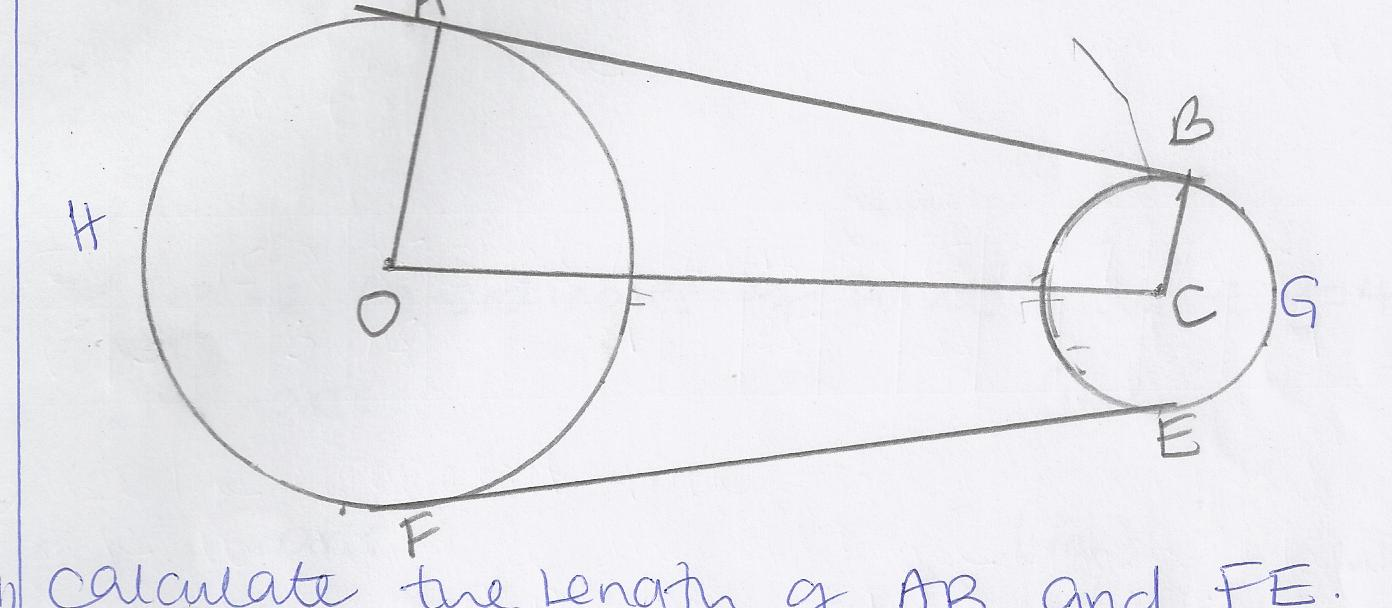 A
B
H
O
C
G
E
F
calculate the Length of AB and FE.